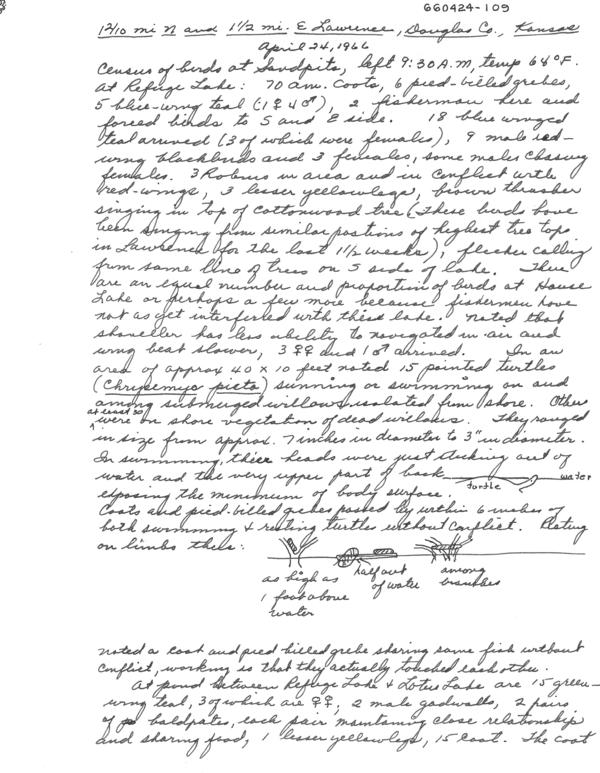 660424-109
1 2/10 mi N and 1 1/2 mi. E Lawrence, Douglas Co., Kansas
April 24, 1966
Census of birds at Sandpits, left 9:30 A.M, temp 68°F.
At Refuge Lake: 70 am. Coots, 6 pied-billed grebes,
5 blue-wing teal (1♀ 4♂), 2 fisherman here and
forced birds to S and E side. 18 blue winged
teal arrived (3 of which were females), 9 male red-
wing blackbirds and 3 females, some males chasing
females. 3 Robins in area and in conflict with
red-wings, 3 lesser yellowlegs, brown thrasher
singing in top of cottonwood tree (these birds have
been singing from similar positions of highest tree tops
in Lawrence for the last 1 1/2 weeks), flicker calling
from same line of trees on S side of lake. There
are an equal number and proportion of birds at House
Lake or perhaps a few more because fishermen have
not as yet interfered with this lake. Noted that
shoveller has less ability to navigated in air and
wing beat slower, 3 ♀♀ and 1 ♂ arrived. In an
area of approx 40 x 10 feet noted 15 painted turtles
(Chrysemys picta) sunning or swimming on and
among submerged willows isolated from shore. Others
at least 30
were on shore vegetation of dead willows. They ranged
in size from approx. 7 inches in diameter to 3" in diameter.
In swimming, their heads were just sticking out of
water and the very upper part of back water
turtle
exposing the minimum of body surface.
Coots and pied-billed grebes passed by within 6 inches of
both swimming & resting turtles without conflict. Resting
on limbs thus:
as high as
1 foot above
water
half out
of water
among
branches
noted a coot and pied billed grebe sharing same fish without
conflict, working so that they actually touched each other.
At pond between Refuge Lake & Lotus Lake are 15 green-
wing teal, 3 of which are ♀♀, 2 male gadwalls, 2 pairs
of baldpates, each pair maintaining close relationship
and sharing food, 1 lesser yellowlegs, 15 coot. The coot